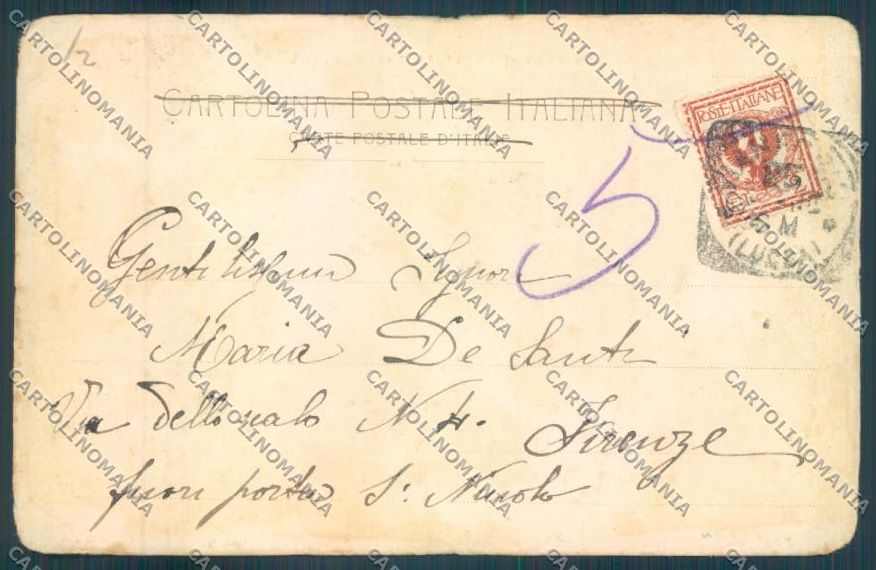 12
CARTOLINA POSTALE ITALIANA
CARTE POSTALE D'ITALIE
POSTE ITALIANE
5
(LUCCA)
Gentilissima Signora
Maria De Santi
Via dello N 4. Firenze
fuori porta S. Nicolo
CARTOLINOMANIA